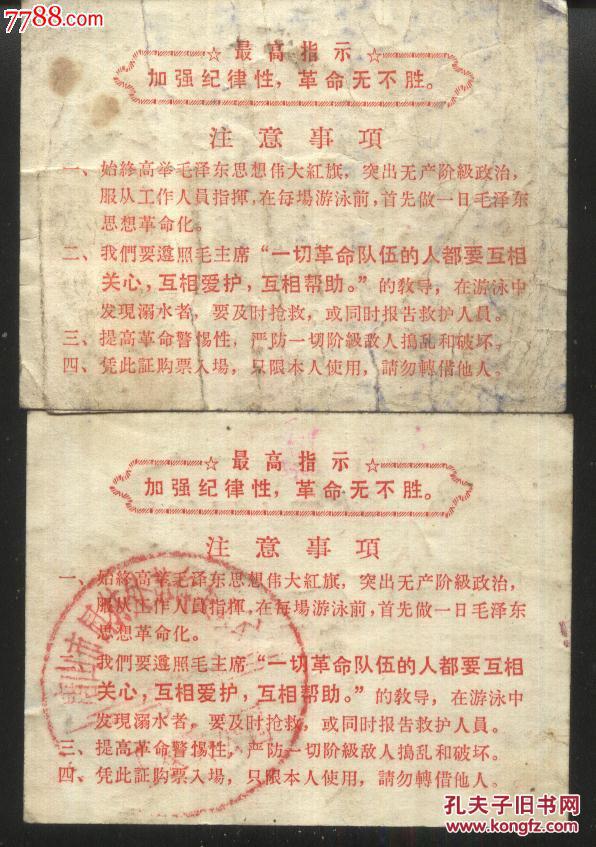 7788.com
☆ 最高指示 ☆
加强纪律性，革命无不胜。
注意事項
一、始終高举毛泽东思想伟大紅旗，突出无产阶級政治，
服从工作人員指揮，在每場游泳前，首先做一日毛泽东
思想革命化。
二、我們要遵照毛主席“一切革命队伍的人都要互相
关心，互相爱护，互相帮助。”的教导，在游泳中
发現溺水者，要及时抢救，或同时报告救护人員。
三、提高革命警惕性，严防一切阶級敌人搗乱和破坏。
四、凭此証购票入場，只限本人使用，請勿轉借他人。
☆ 最高指示 ☆
加强纪律性，革命无不胜。
注意事項
一、始終高举毛泽东思想伟大紅旗，突出无产阶級政治，
服从工作人員指揮，在每場游泳前，首先做一日毛泽东
思想革命化。
我們要遵照毛主席“一切革命队伍的人都要互相
关心，互相爱护，互相帮助。”的教导，在游泳中
发現溺水者，要及时抢救，或同时报告救护人員。
三、提高革命警惕性，严防一切阶級敌人搗乱和破坏。
四、凭此証购票入場，只限本人使用，請勿轉借他人。
孔夫子旧书网
www.kongfz.com